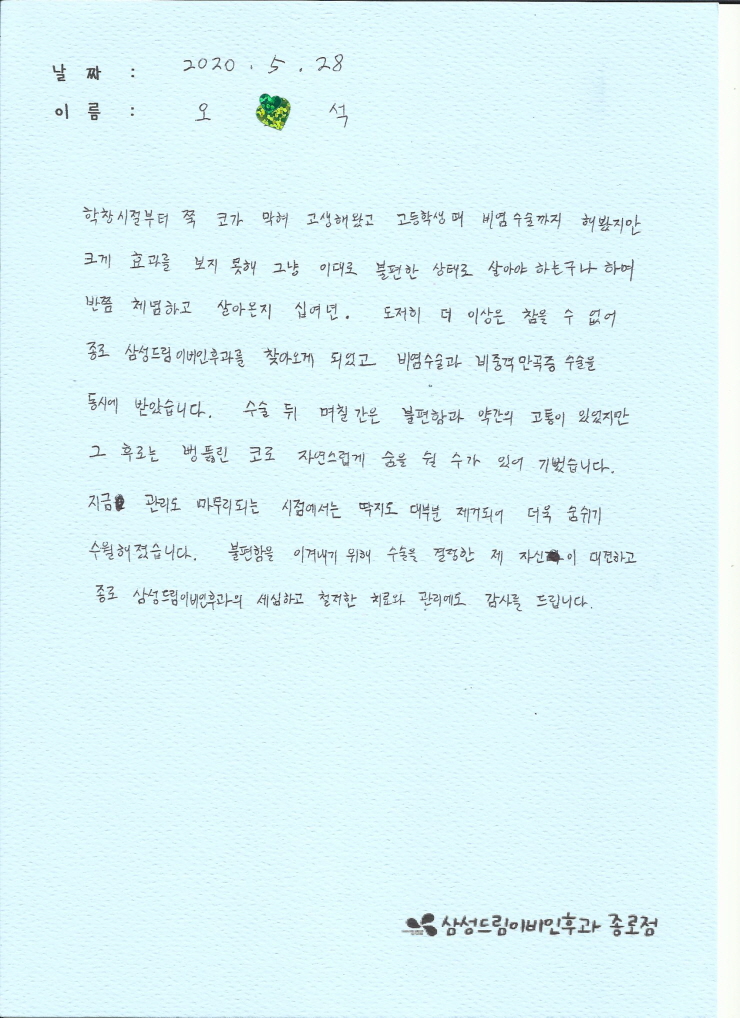 날 짜 : 2020 . 5 . 28
이 름 : 오 석
학창시절부터 쭉 코가 막혀 고생해왔고 고등학생 때 비염수술까지 해봤지만
크게 효과를 보지 못해 그냥 이대로 불편한 상태로 살아야 하는구나 하여
반쯤 체념하고 살아온지 십여년. 도저히 더 이상은 참을 수 없어
종로 삼성드림이비인후과를 찾아오게 되었고 비염수술과 비중격만곡증 수술을
동시에 받았습니다. 수술 뒤 며칠간은 불편함과 약간의 고통이 있었지만
그 후로는 뻥뚫린 코로 자연스럽게 숨을 쉴 수가 있어 기뻤습니다.
지금 관리도 마무리되는 시점에서는 딱지도 대부분 제거되어 더욱 숨쉬기
수월해졌습니다. 불편함을 이겨내기 위해 수술을 결정한 제 자신이 대견하고
종로 삼성드림이비인후과의 세심하고 철저한 치료와 관리에도 감사를 드립니다.
삼성드림이비인후과 종로점